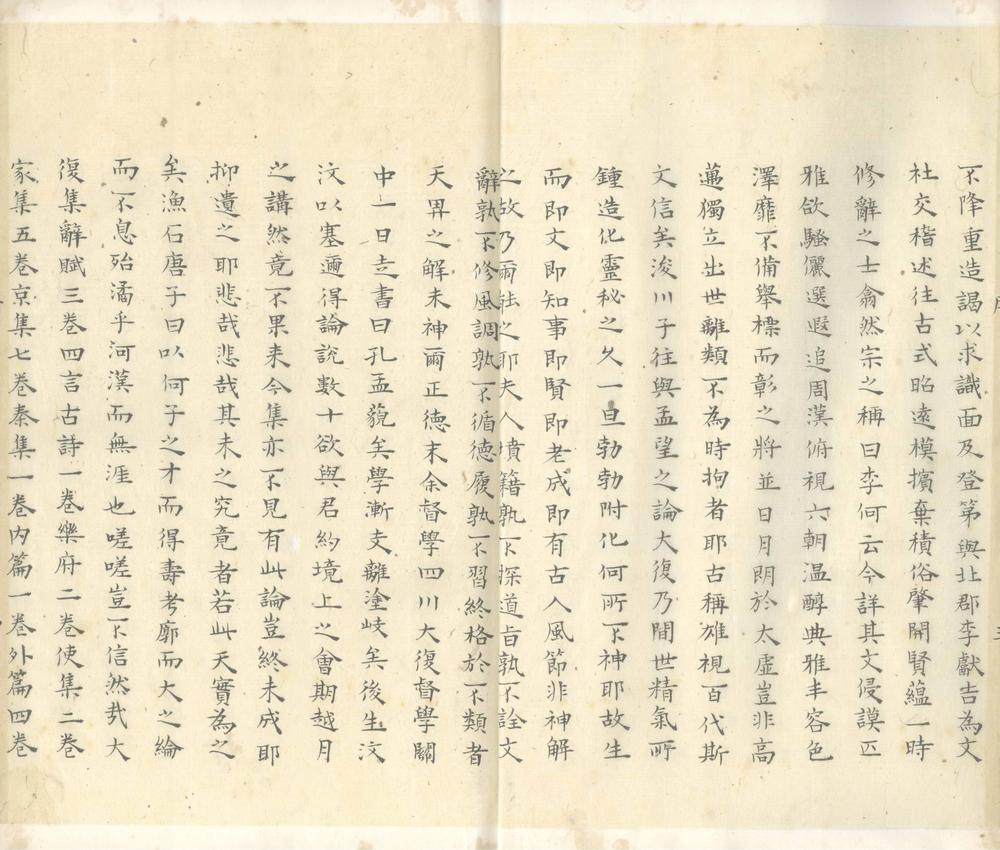 不降重造謁以求識面及登第與北郡李獻吉為文
社交楷述往古式昭遠模擯棄積俗肇開賢蘊一時
修辭之士翕然宗之稱曰李何云今詳其文侵謨匹
雅欱騷儷選遐追周漢俯視六朝温醇典雅丰容色
澤靡不備舉標而彰之將並日月朗於太虛豈非高
邁獨立出世離類不為時拘者耶古稱雄視百代斯
文信矣浚川子往與孟望之論大復乃間世精氣所
鍾造化靈秘之久一旦勃勃附化何所不神耶故生
而即文即知事即賢即老成即有古人風節非神解
之故乃爾法之耶夫人墳籍孰不探道旨孰不詮文
辭孰不修風調孰不循德履孰不習終格於不類者
天畀之解未神爾正德末余督學四川大復督學關
中一日走書曰孔孟藐矣學漸支離塗岐矣後生汶
汶以塞邇得論說數十欲與君約境上之會期越月
之講然竟不果来今集亦不見有此論豈終未成耶
抑遺之耶悲哉悲哉其未之究竟者若此天實為之
矣漁石唐子曰以何子之才而得壽考廓而大之綸
而不息殆潏乎河漢而無涯也嗟嗟豈不信然㢤大
復集辭賦三卷四言古詩一卷樂府二卷使集二卷
家集五卷京集七卷秦集一卷内篇一卷外篇四卷